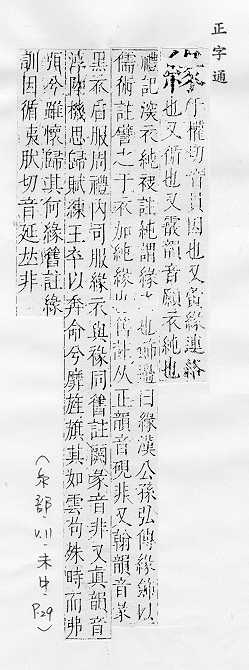 正字通
緣 于權切音員因也又夤緣連絡
也又循也又霰韻音願衣純也
禮記深衣純袂註純謂緣 也 邊曰緣漢公孫弘傳緣飾以
儒術註譬之于衣加純緣也舊註从正韻音硯非又翰韻音彖
黑衣后服周禮內司服緣衣與褖同舊註闕彖音非又眞韻音
陸機思歸賦練王卒以奔命兮靡旌旗其如雲句 時而弗
今雖懷歸其何緣舊註緣
訓因循夷肰切音延𠀤非
(糸部 V.11 未中 P.29)